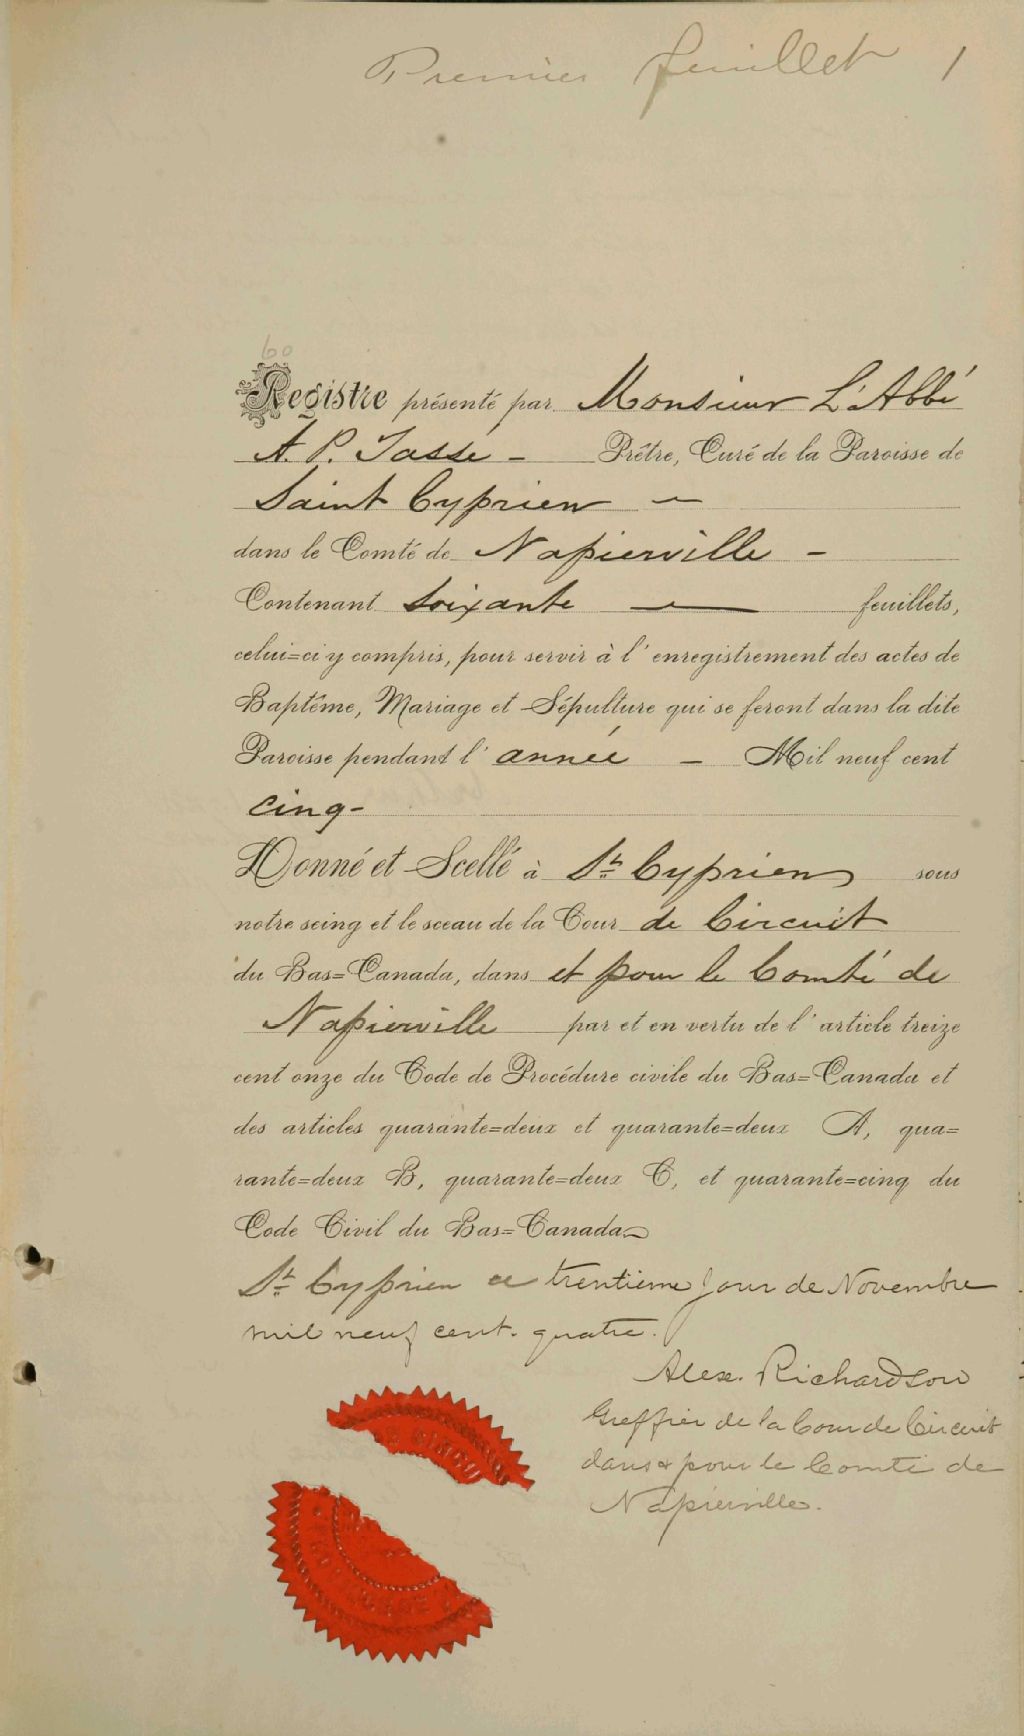 Premier feuillet 1
60
Registre présenté par Monsieur L'Abbé
A. P. Tassé - Prêtre, Curé de la Paroisse de
Saint Cyprien -
dans le Comté de Napierville -
Contenant soixante - feuillets,
celui=ci y compris, pour servir à l'enregistrement des actes de
Baptême, Mariage et Sépulture qui se feront dans la dite
Paroisse pendant l'année - Mil neuf cent
cinq-
Donné et Scellé à St Cyprien sous
notre seing et le sceau de la Cour de Circuit
du Bas=Canada, dans et pour le Comté de
Napierville par et en vertu de l'article treize
cent onze du Code de Procédure civile du Bas=Canada et
des articles quarante=deux et quarante=deux A, qua=
rante=deux B, quarante=deux C, et quarante=cinq du
Code Civil du Bas=Canada.
St Cyprien ce trentième jour de Novembre
mil neuf cent. quatre.
Alex. Richardson
Greffier de la Cour de Circuit
dans & pour le Comté de
Napierville.
CIRCU